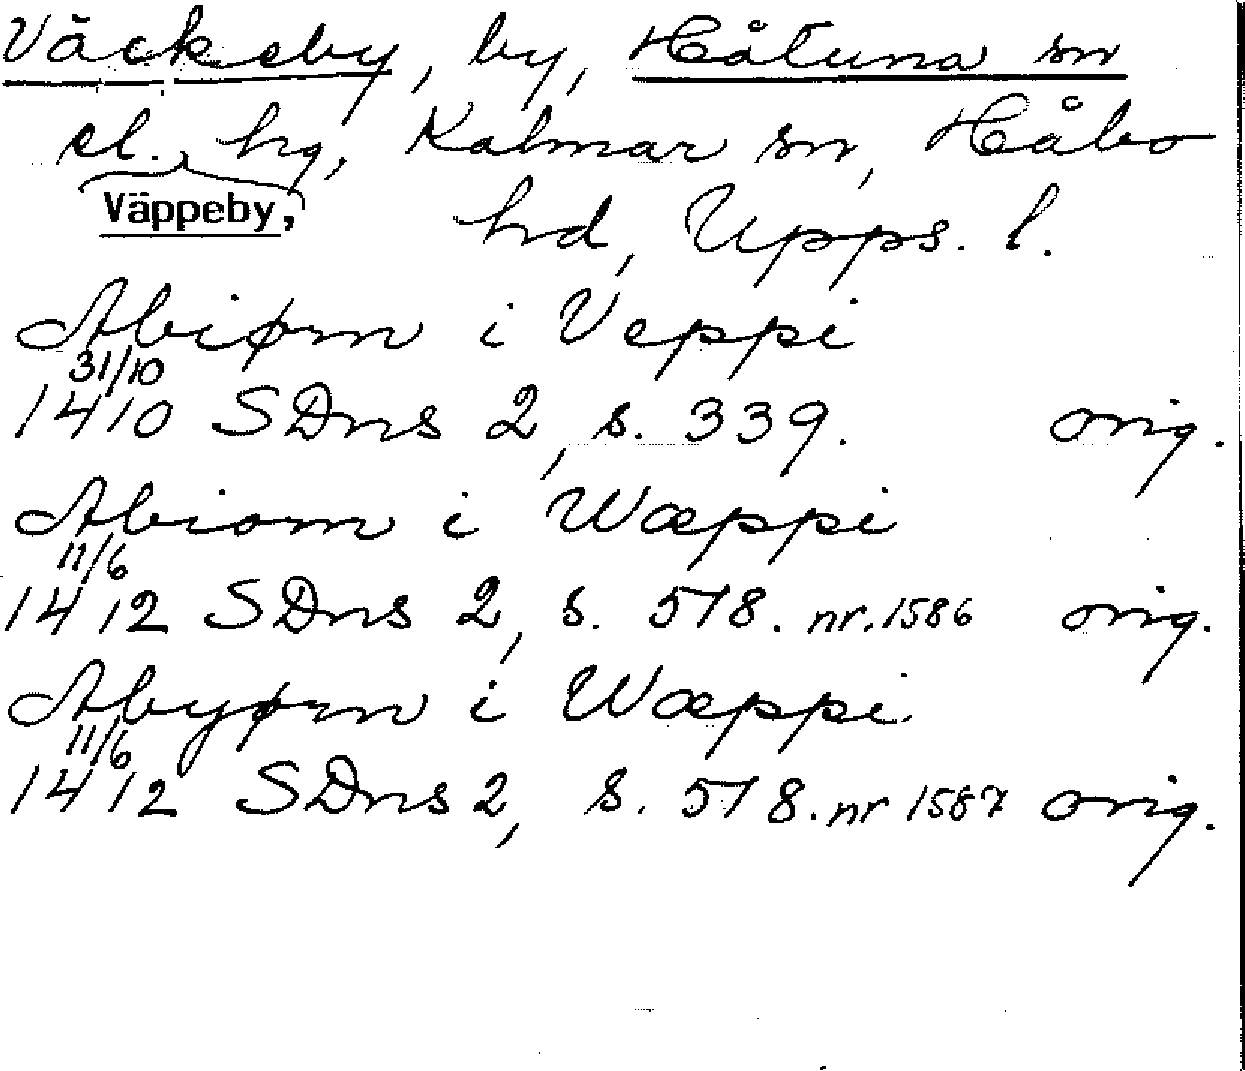 Väckeby, by, Håtuna sn
el. hg, Kalmar sn, Håbo
Väppeby,
hd, Upps. l.
Abiørn i Veppi
31/10
1410 SDns 2, s. 339. orig.
Abiorn i Wæppi
11/6
1412 SDns 2, s. 578. nr. 1586 orig.
Abyørn i Wæppi
11/6
1412 SDns 2, s. 578. nr 1587 orig.